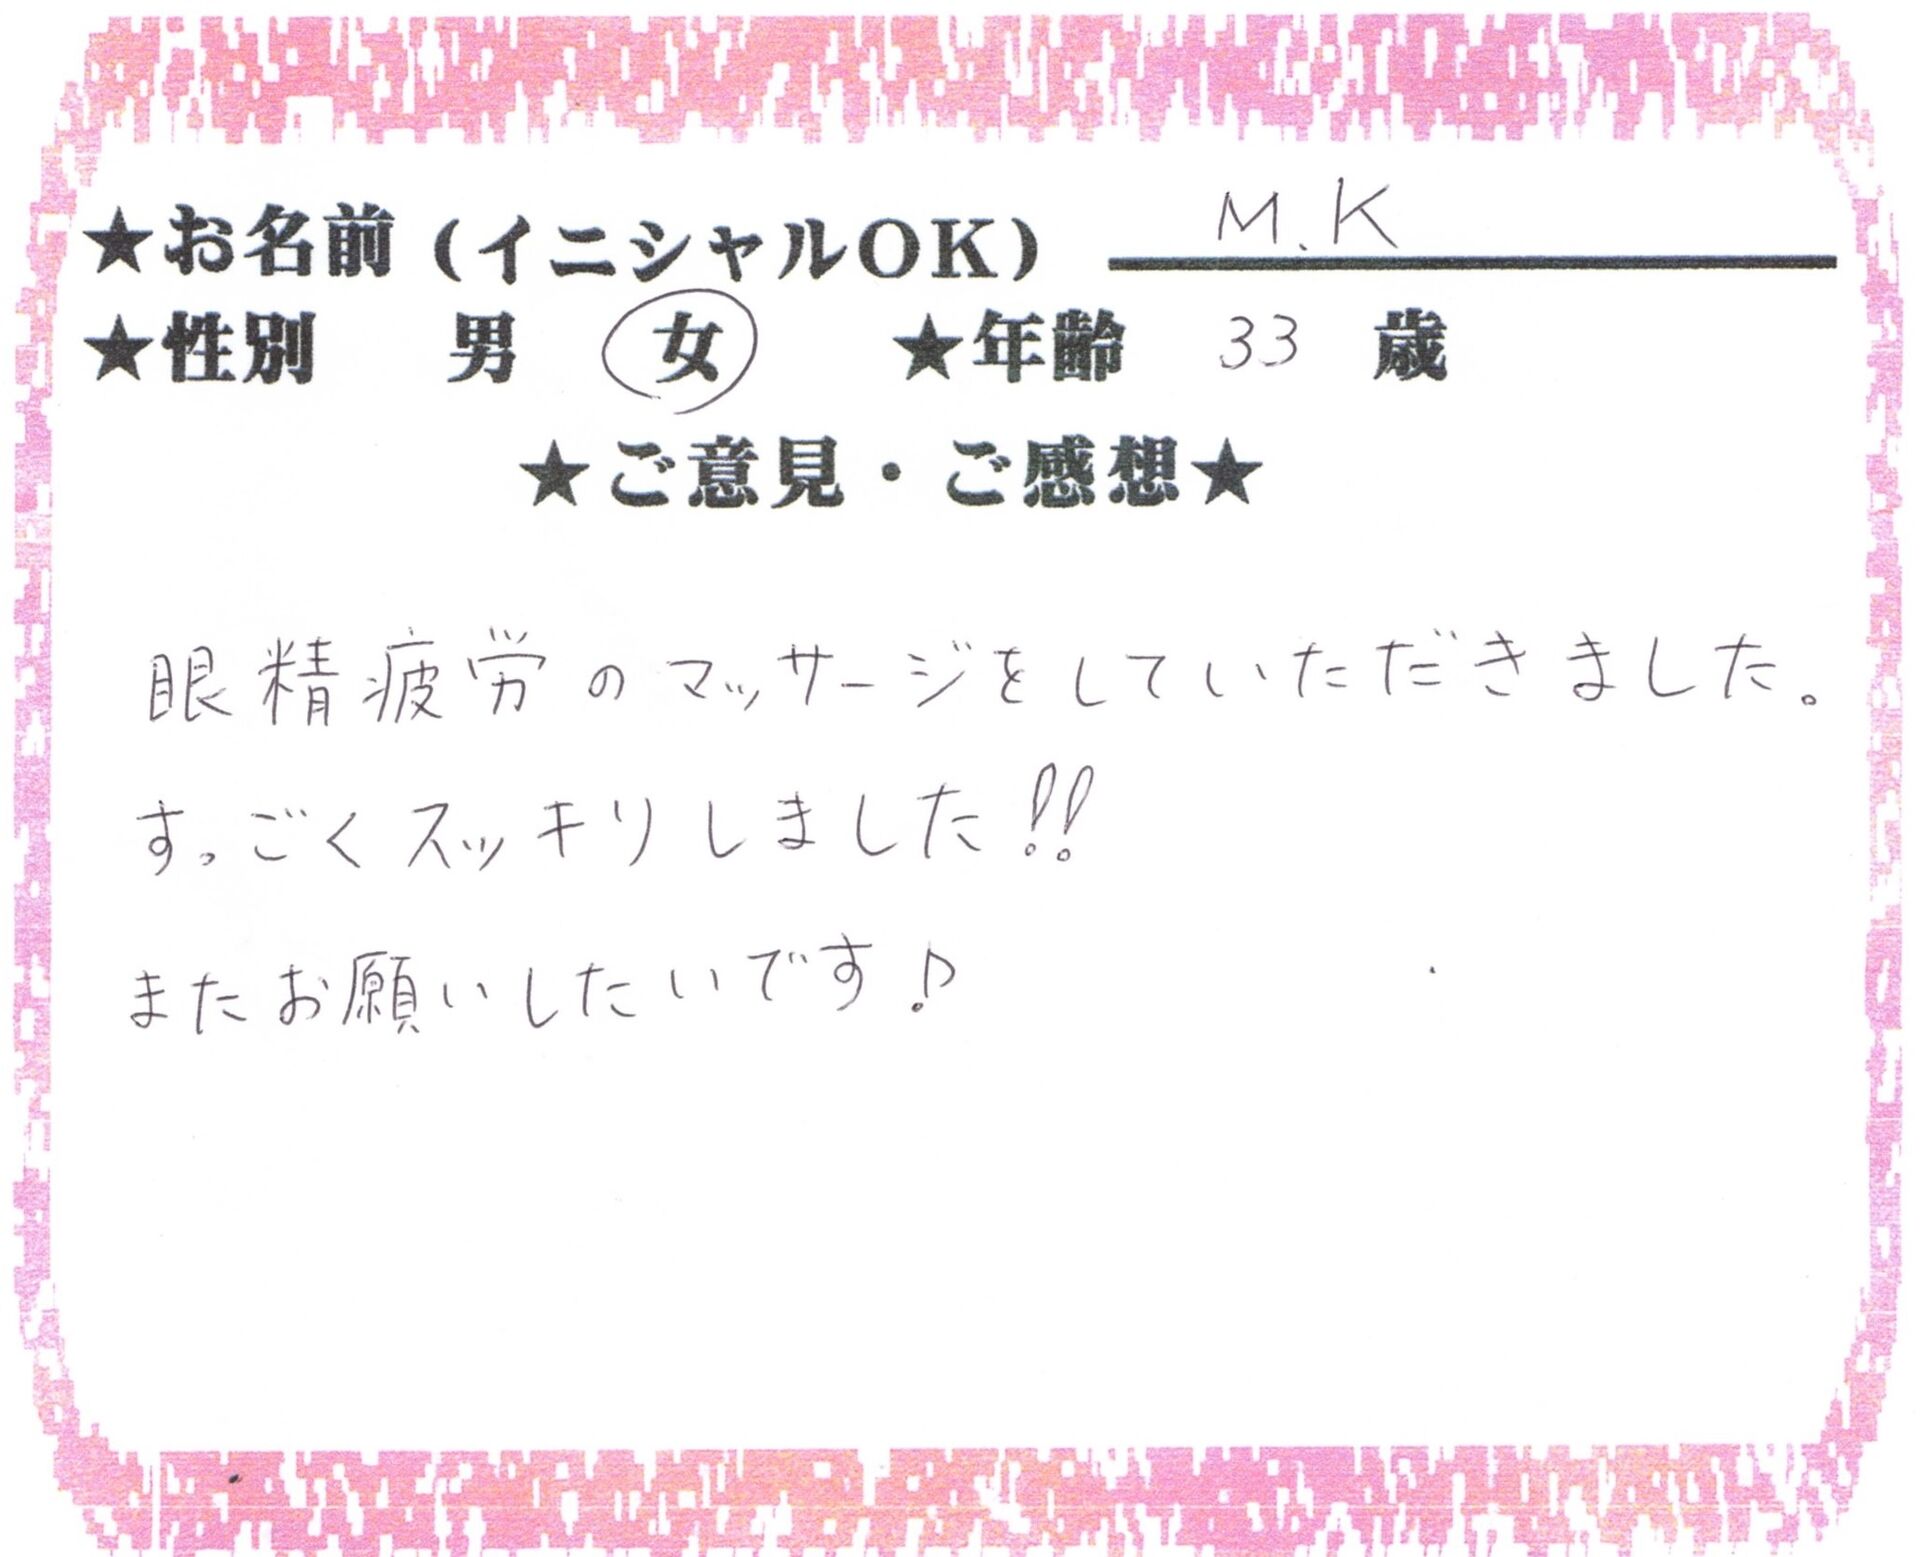 ★お名前(イニシャルOK) M.K
★性別 男 女 ★年齢 33 歳
★ご意見・ご感想★
眼精疲労のマッサージをしていただきました。
すっごくスッキリしました!!
またお願いしたいです♪